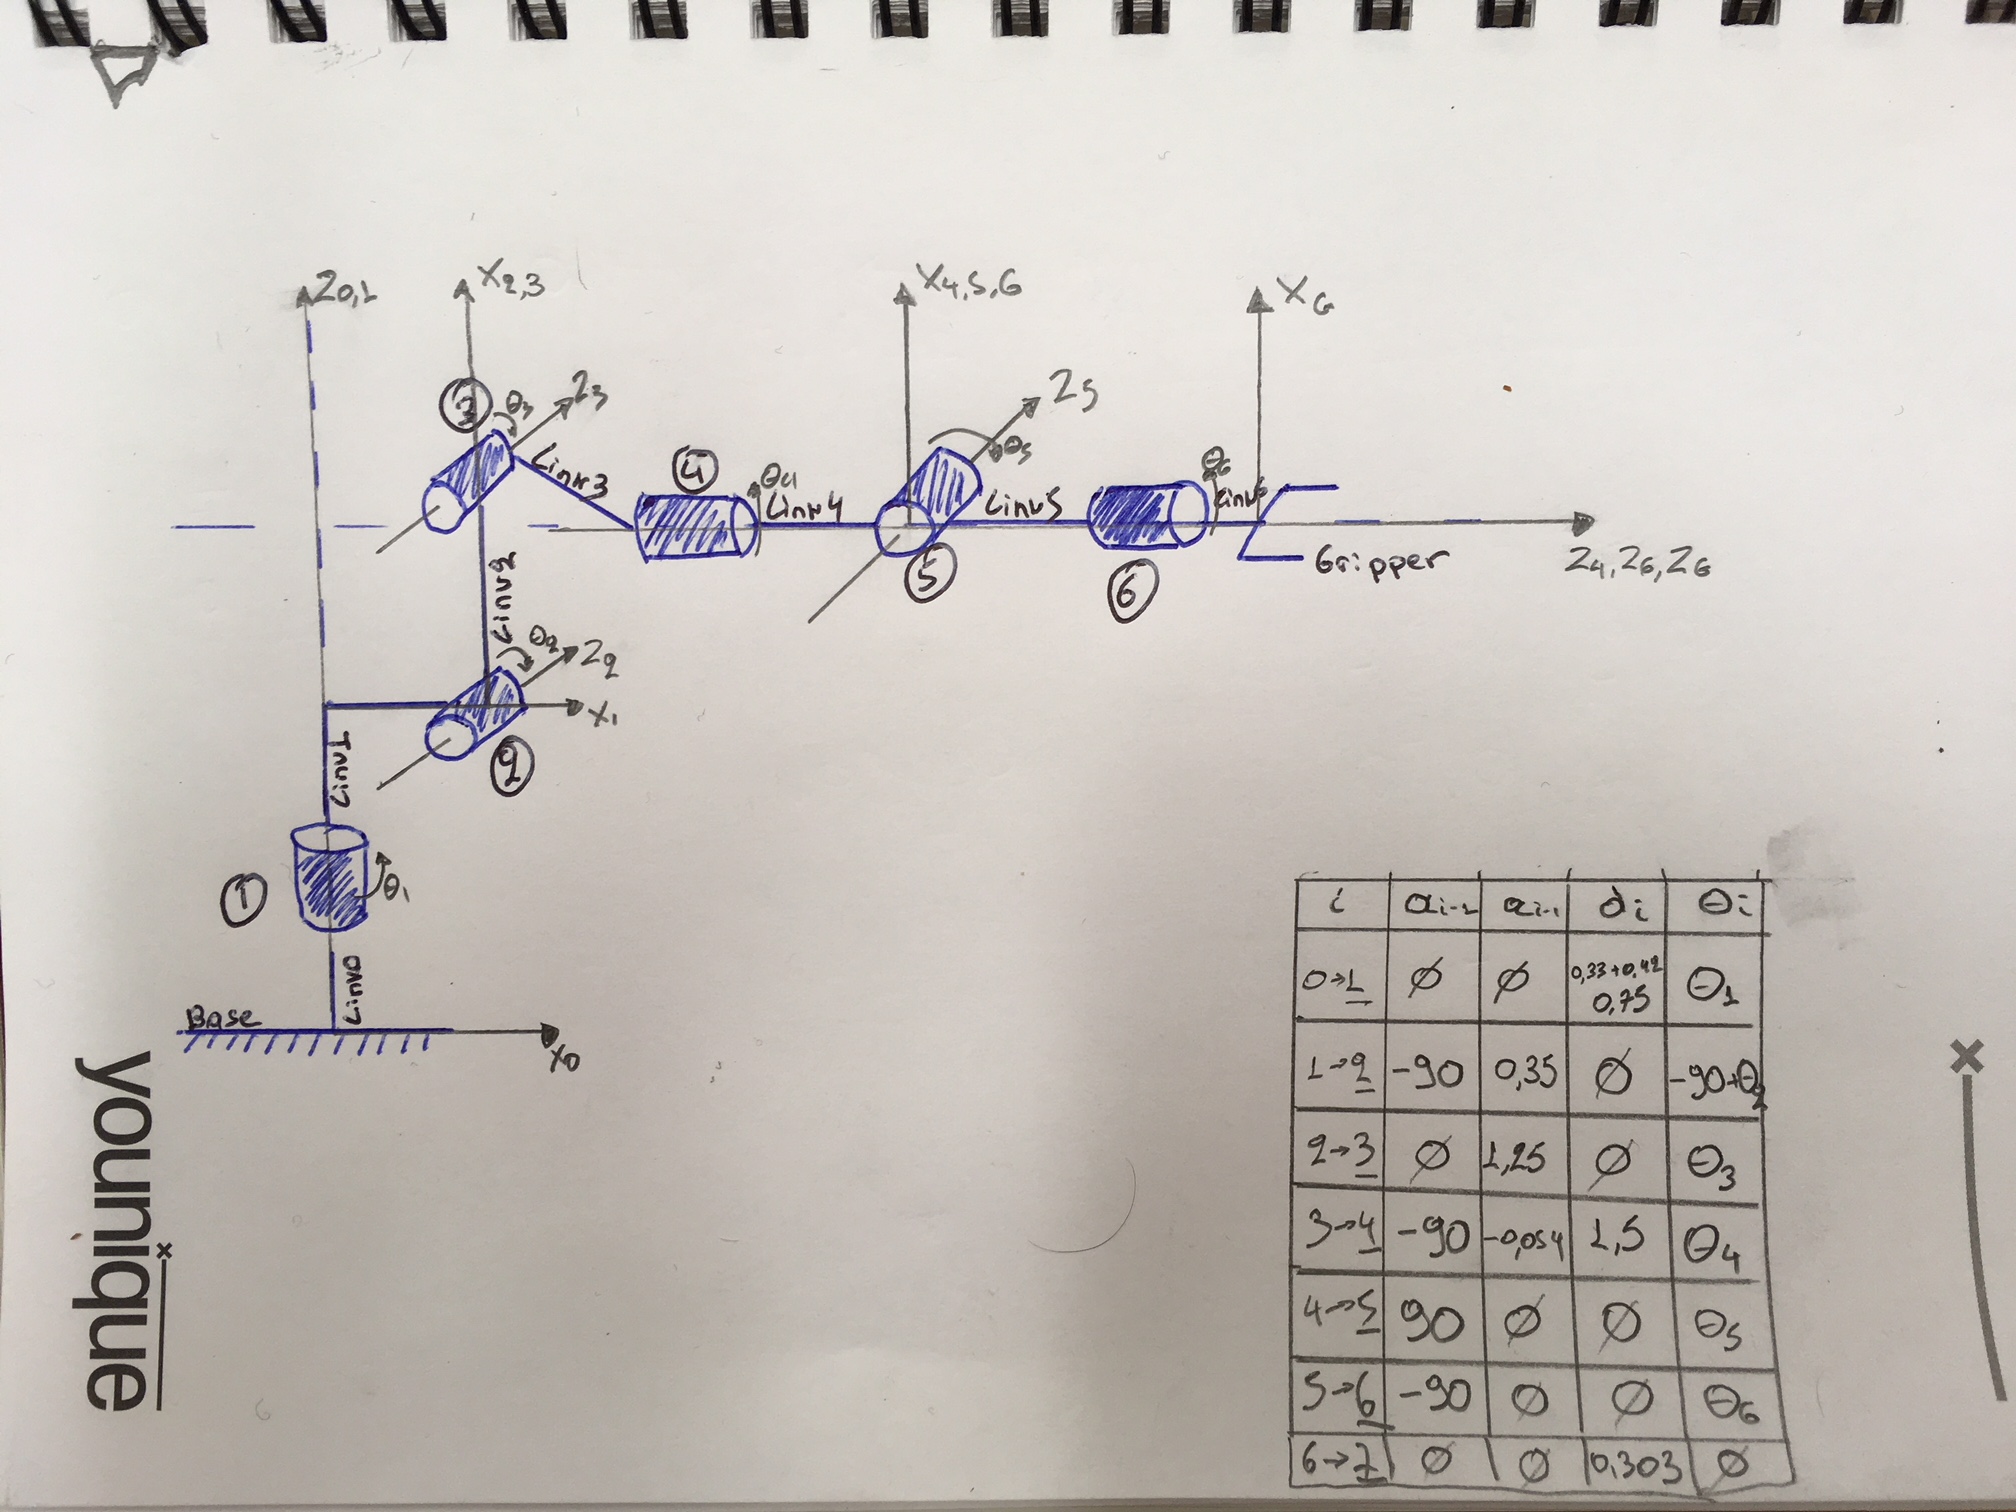 Z0,1
X2,3
X4,5,6
XG
3
θ3
Z3
Link3
4
θ4
Link4
Z5
θ5
Link5
5
θ6
Link6
6
Gripper
Z4, Z6, ZG
Link2
θ2
Z2
X1
2
Link1
1
θ1
Link0
Base
X0
i αi-1 ai-1 di θi
0→1 Ø Ø 0,33+0,42 0,75 θ1
1→2 -90 0,35 Ø -90+θ2
2→3 Ø 1,25 Ø θ3
3→4 -90 -0,054 1,5 θ4
4→5 90 Ø Ø θ5
5→6 -90 Ø Ø θ6
6→7 Ø Ø 0,303 Ø
younique